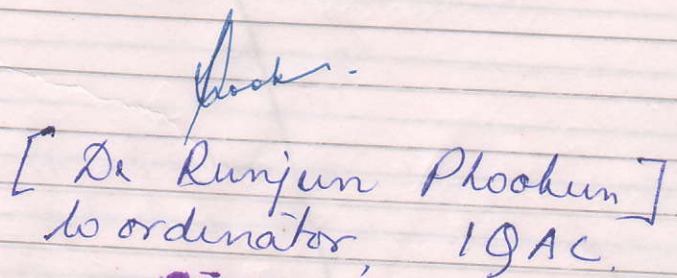 [Dr Runjun Phookun]
Coordinator, IQAC.